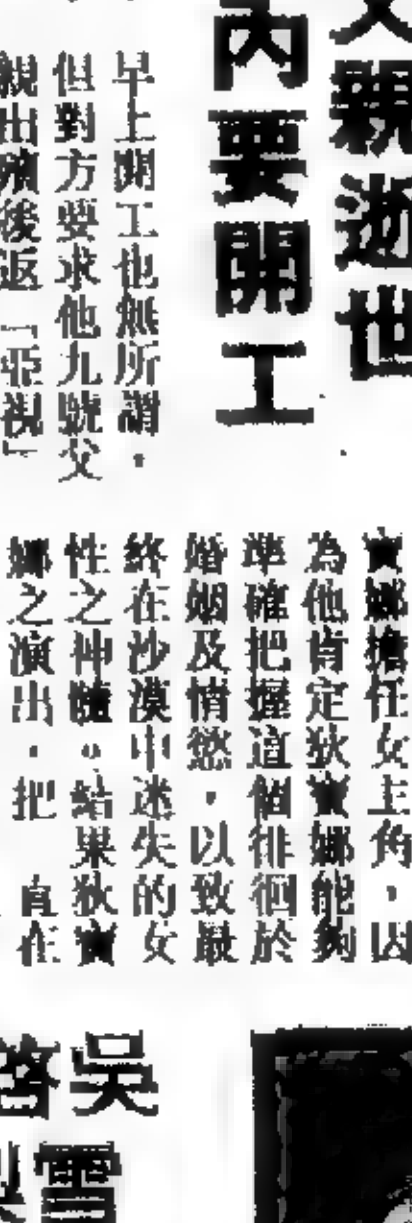 父親逝世
內要開工
早上開工也無所謂，
但對方要求他九號父
親出殯後返「亞視」
寶娜擔任女主角，因
為他肯定狄寶娜能夠
準確把握這個徘徊於
婚姻及情慾，以致最
終在沙漠中迷失的女
性之神髓。結果狄寶
娜之演出，把
直在
吳雪